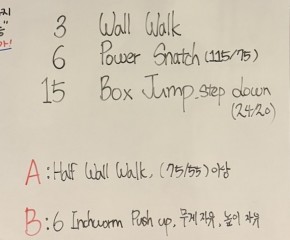 지
"
3 Wall Walk
6 Power Snatch (115/75)
15 Box Jump step down
(24/20)
A : Half Wall Walk, (75/55)이상
B : 6 Inchworm Push up, 무게 자유, 높이 자유